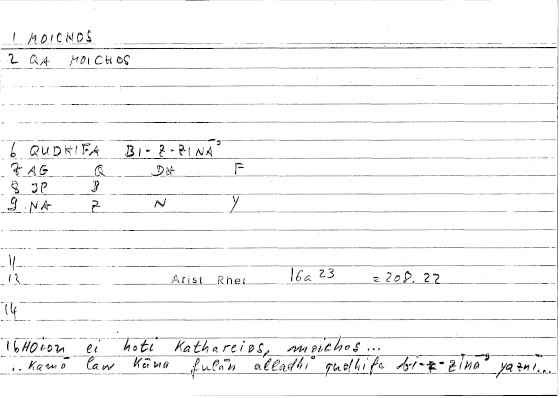 1 MOICHOS
2 QA MOICHOS
6 QUDHIFA BI-Z-ZINĀʾ
7 AG Q DH F
8 JP B
9 NA Z N Y
11
13 Arist Rhet 16a 23 = 208.22
14
16 Hoion ei hoti kathareios, moichos...
.. kamā law kāna fulān alladhī qudhifa bi-z-zināʾ yaznī...